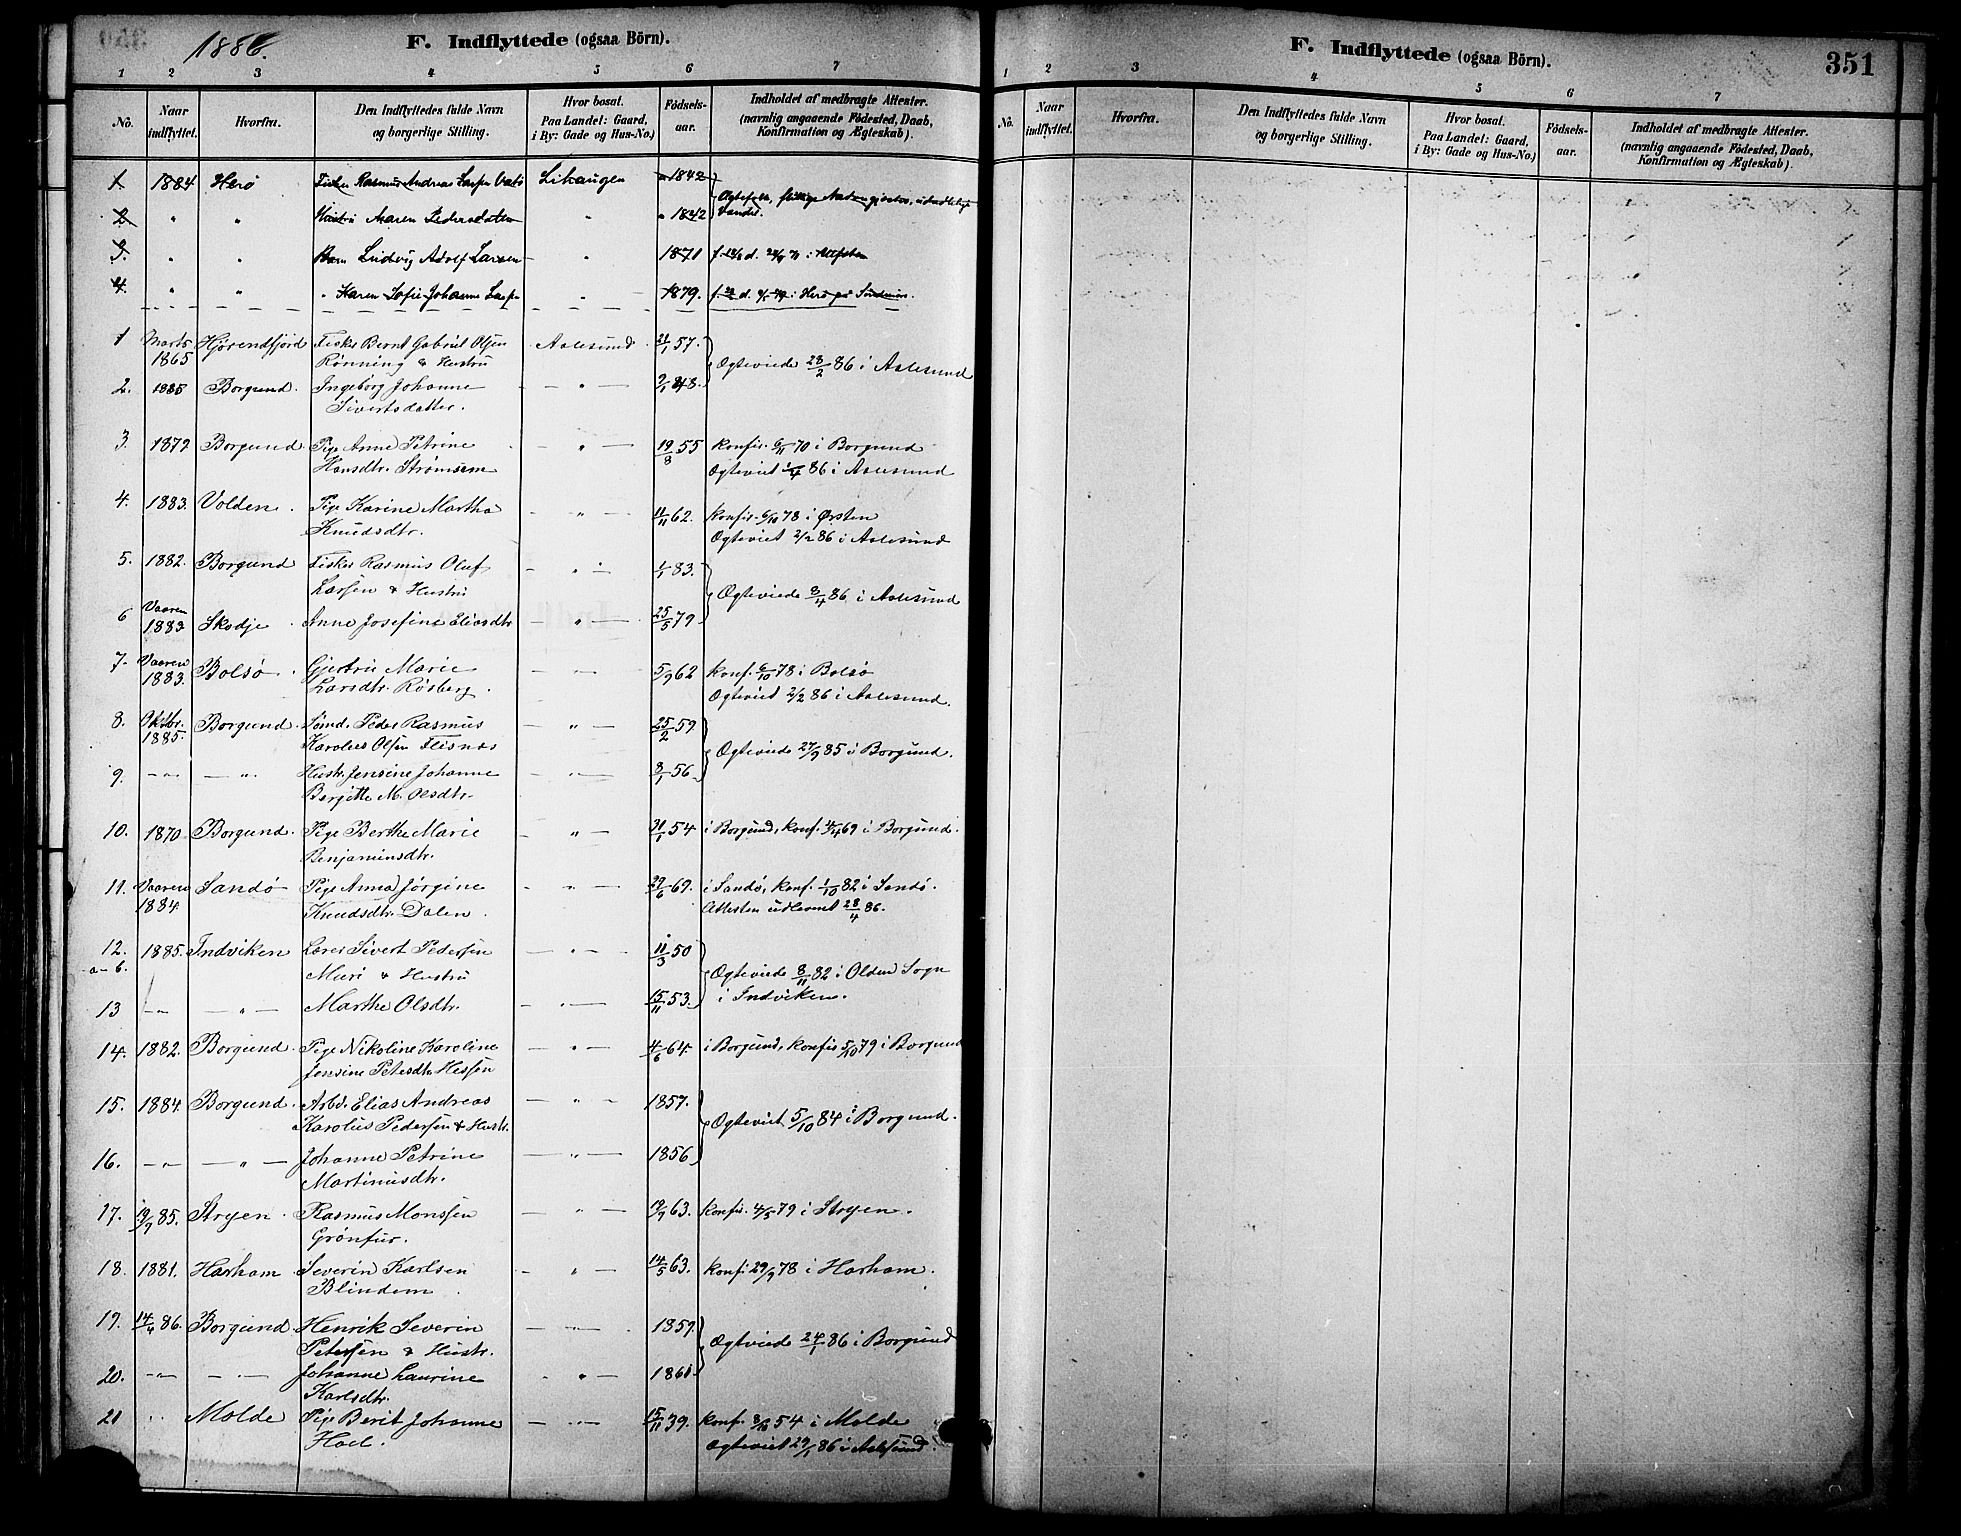 1886.
F. Indflyttede (ogsaa Börn).
1 2 3 4 5 6 7
No.
Naar indflyttet.
Hvorfra.
Den Indflyttedes fulde Navn og borgerlige Stilling.
Hvor bosat. Paa Landet: Gaard, i By: Gade og Hus-No.)
Födsels-aar.
Indholdet af medbragte Attester. (navnlig angaaende Födested, Daab, Konfirmation og Ægteskab).
1 1884 Herö Fisker Rasmus Andreas Likaugen 1842
2. " " Hustru Maren Pedersdatter " " 1842
3. " " Barn Ludvig Adolf Larsen - " 1871
4. " " " Karen Sofie Johanne " 1879. Herö paa Söndmör.
1 Marts 1865 Hjörendfjord Fisker Bernt Gabriel Olsen Aalesund 21/1 57.
Rönning & Hustru Ogteviede 28/2 86 i Aalesund
2. 1885 Borgund. Ingeborg Johanne - " - 9/1 48.
Sivertsdatter.
3. 1872 Borgund Pige Anne Petrine - " - 19/8 55 konfir. 6/11 70 i Borgund
Hansdtr. Strömsem Ogteviet 1/4 86 i Aalesund
4. 1883. Volden. Pige Karine Martha - " - 11/11 62. konfir. 6/10 78 i Ørsten
Knudsdtr. Ogteviet 2/2 86 i Aalesund
5. 1882. Borgund Fisker Rasmus Oluf - " - 1/1 83.
Larsen & Hustru Ogteviede 8/4 86 i Aalesund
6 Vaaren 1883 Skodje. Anne Josefine Eliasdtr - " - 25/5 79
7. Vaaren 1883. Bolsö. Gjertru Marie - " - 5/9 62 konf. 6/10 78 i Bolsö
Larsdtr. Rösberg. Ogteviet 2/2 86 i Aalesund.
8. Oktbr. 1885. Borgund. Sömd. Peder Rasmus - " - 25/2 59
Karolus Olsen Flisnes Ogteviede 27/9 85 i Borgund.
9. - " - - " - Hustr. Jensine Johanne - " - 8/1 56
Bergitte M. Olsdtr.
10. 1870. Borgund. Pige Berthe Marie - " - 31/1 54 i Borgund, konf. 4/4 69 i Borgund.
Benjaminsdtr.
11. Vaaren 1884 Sandö Pige Anna Jörgine - " - 29/6 67. i Sandö, konf. 1/10 82 i Sandö.
Knudsdtr. Dalen. Attesten udleveret 28/4 86.
12. 1885. Indviken Lærer Sivert Pedersen - " - 11/3 50
Muri & Hustru Ogteviede 8/11 82 i Olden Sogn
13 - " - - " - Marthe Olsdtr. - " - 15/11 53. i Indviken.
14. 1882. Borgund. Pige Nikoline Karoline - " - 4/6 64. i Borgund, konfir 5/10 79 i Borgund
Jensine Petersdtr Hessen
15. 1884. Borgund. Arbd. Elias Andreas - " - 1857.
Karolus Pedersen & Hustr. Ogteviet 5/10 84 i Borgund.
16. - " - - " - Johanne Petrine - " - 1856
Martinusdtr.
17. 19/9 85. Stryen. Rasmus Monssen - " - 19/9 63. konfir. 4/5 79 i Stryen.
Grönfur.
18. 1881. Harham Severin Karlsen - " - 14/5 63. konfi 29/9 78 i Harham.
Blindem
19. 14/4 86. Borgund. Henrik Severin - " - 1859.
Petersen & Hustr. Ogteviede 24/1 86 i Borgund
20. - " - - " - Johanne Laurine - " - 1861
Karlsdtr.
21 " Molde Pige Berit Johanne - " - 15/11 39. konf. 8/10 54 i Molde
Hoel. Ogteviet 29/1 86 i Aalesund.
F. Indflyttede (ogsaa Börn).
351
1 2 3 4 5 6 7
No.
Naar indflyttet.
Hvorfra.
Den Indflyttedes fulde Navn og borgerlige Stilling.
Hvor bosat. Paa Landet: Gaard, i By: Gade og Hus-No.)
Födsels-aar.
Indholdet af medbragte Attester. (navnlig angaaende Födested, Daab, Konfirmation og Ægteskab).